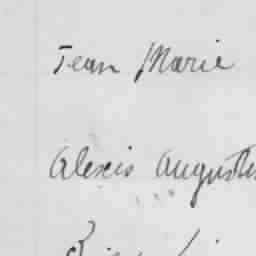 Jean Marie
Alexis Auguste